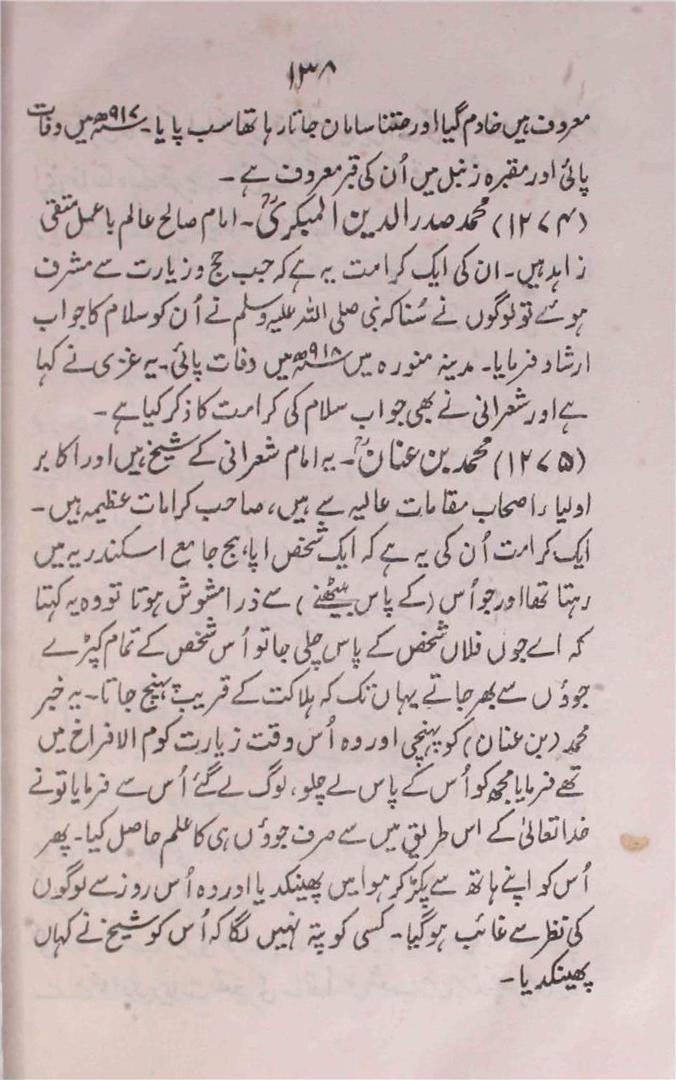 ۱۳۸
معروف ہیں خادم گیا اور جتنا سامان جاتا رہا تھا سب پایا۔ ۹۱۷ھ میں وفات
پائی اور مقبرہ زنبل میں اُن کی قبر معروف ہے۔
(۱۲۷۴) محمد صدر الدین البکریؒ۔ امام صالح عالم باعمل متقی
زاہد ہیں۔ ان کی ایک کرامت یہ ہے کہ جب حج و زیارت سے مشرف
ہوئے تو لوگوں نے سُنا کہ نبی صلی اللہ علیہ وسلم نے اُن کو سلام کا جواب
ارشاد فرمایا۔ مدینہ منورہ میں ۹۱۸ھ میں وفات پائی۔ یہ غزی نے کہا
ہے اور شعرانی نے بھی جواب سلام کی کرامت کا ذکر کیا ہے۔
(۱۲۷۵) محمد بن عنانؒ۔ یہ امام شعرانی کے شیخ ہیں اور اکابر
اولیاء اصحاب مقامات عالیہ سے ہیں، صاحب کرامات عظیمہ ہیں۔
ایک کرامت اُن کی یہ ہے کہ ایک شخص اپاہج جامع اسکندریہ میں
رہتا تھا اور جو اُس (کے پاس بیٹھنے) سے ذرا مشوش ہوتا تو وہ یہ کہتا
کہ اے جوں فلاں شخص کے پاس چلی جا تو اُس شخص کے تمام کپڑے
جوؤں سے بھر جاتے یہاں تک کہ ہلاکت کے قریب پہنچ جاتا۔ یہ خبر
محمد (بن عنان) کو پہنچی اور وہ اُس وقت زیارت کوم الافراخ میں
تھے فرمایا مجھ کو اُس کے پاس لے چلو، لوگ لے گئے اُس سے فرمایا تو نے
خدا تعالیٰ کے اس طریق میں سے صرف جوؤں ہی کا علم حاصل کیا۔ پھر
اُس کو اپنے ہاتھ سے پکڑ کر ہوا میں پھینکدیا اور وہ اُس روز سے لوگوں
کی نظر سے غائب ہوگیا۔ کسی کو پتہ نہیں لگا کہ اُس کو شیخ نے کہاں
پھینکدیا۔